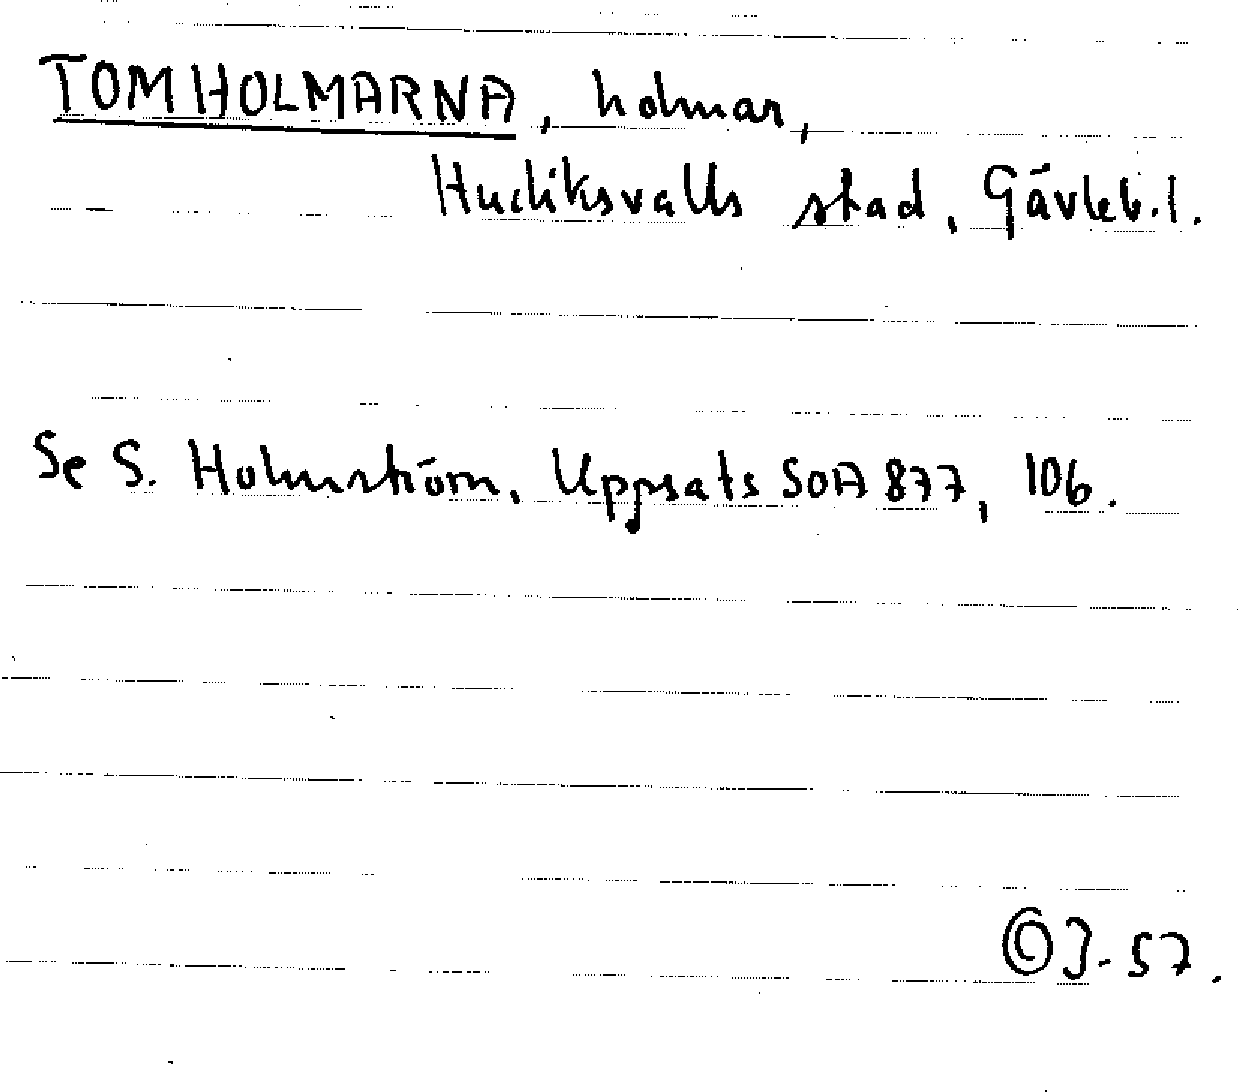 TOMHOLMARNA, holmar,
Hudiksvalls stad, Gävleb.l.
Se S. Holmström, Uppsats SOA 877, 106.
57.